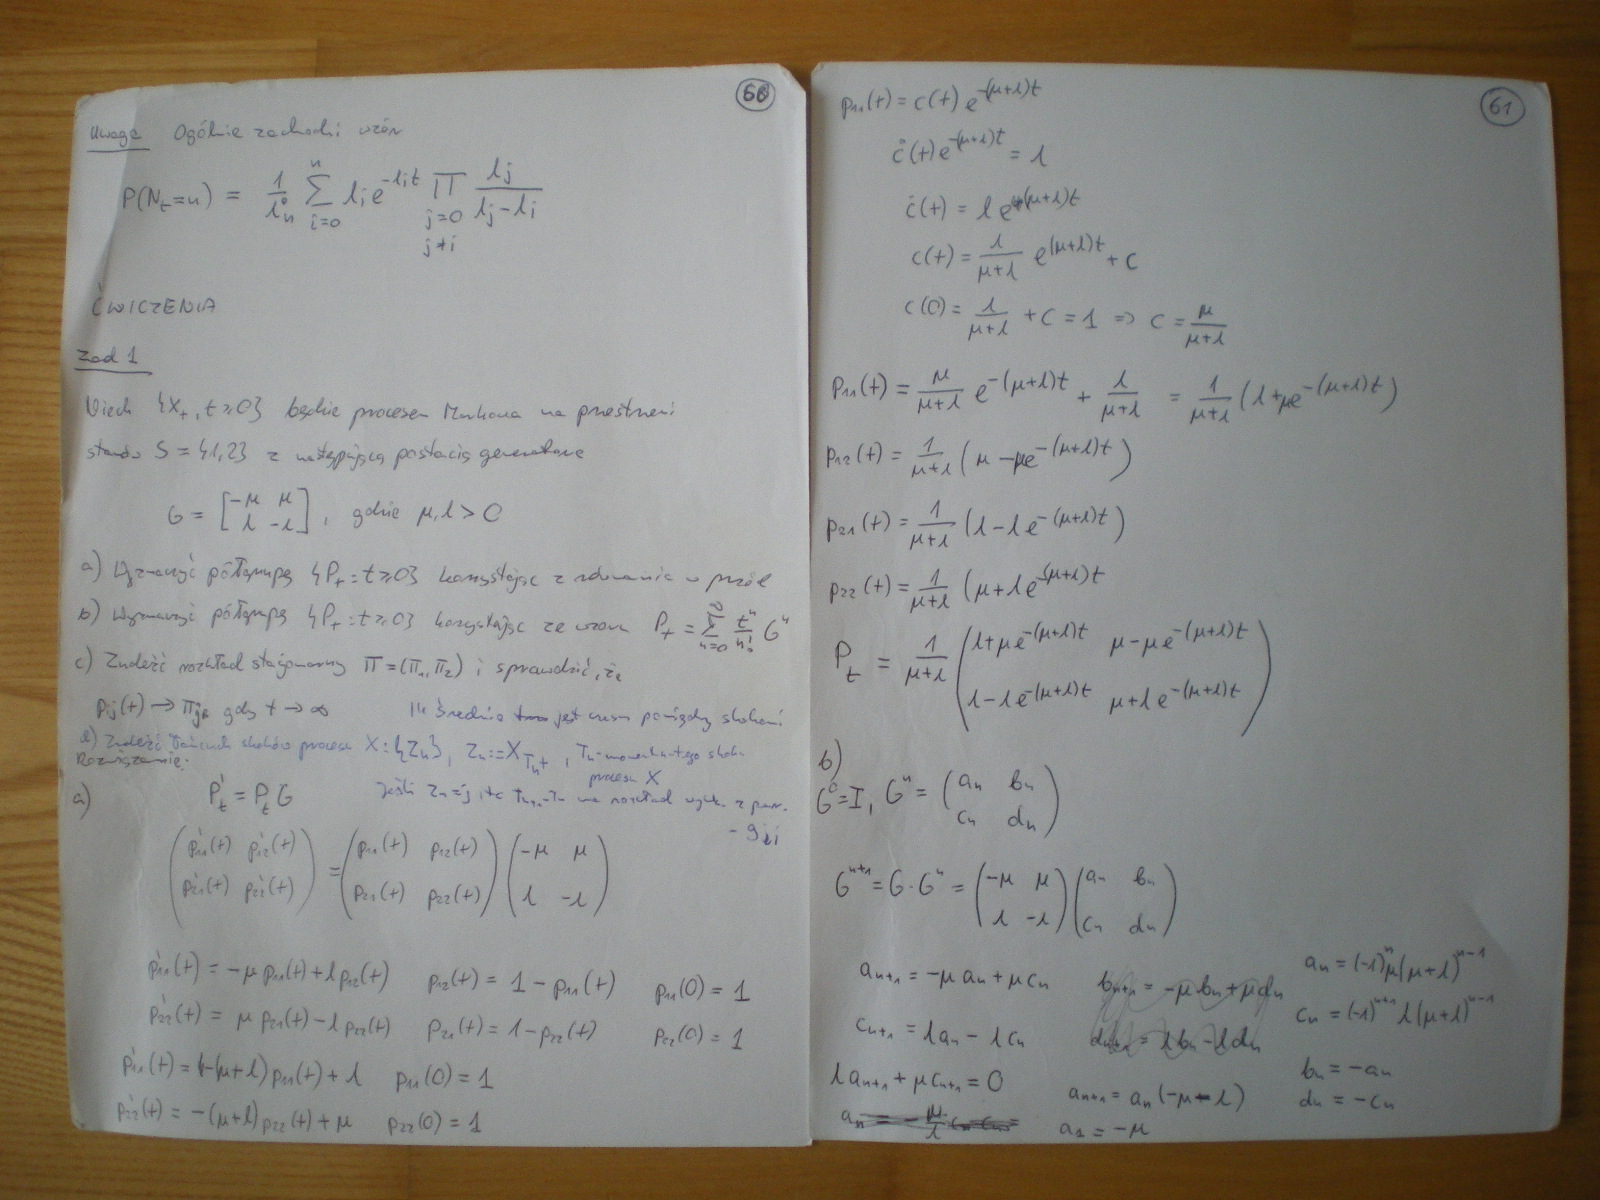 60
Uwaga Ogólnie zachodzi wzór
P(N_t=n) = 1/λ_n ∑_{i=0}^{n} λ_i e^{-λ_i t} ∏_{j=0, j≠i} λ_j/(λ_j-λ_i)
ĆWICZENIA
Zad 1
Niech {X_t, t≥0} będzie procesem Markowa na przestrzeni
stanów S = {1,2} z następującą postacią generatora
G = [-μ μ; λ -λ], gdzie μ,λ > 0
a) Wyznaczyć półgrupę {P_t : t≥0} korzystając z równania w przód
b) Wyznaczyć półgrupę {P_t : t≥0} korzystając ze wzoru P_t = ∑_{n=0}^{∞} t^n/n! G^n
c) Znaleźć rozkład stacjonarny Π = (Π_1, Π_2) i sprawdzić, że
p_ij(t) → Π_j, gdy t → ∞ Ile średnio jest czasu pomiędzy skokami
d) Znaleźć łańcuch skoków procesu X : {Z_n}, Z_n := X_{T_n+}, T_n - moment n-tego skoku
procesu X
Rozwiązanie:
Jeśli Z_n = j, to T_{n+1}-T_n ma rozkład wykł. z par.
a) P'_t = P_t G
(p'_11(t) p'_12(t); p'_21(t) p'_22(t)) = (p_11(t) p_12(t); p_21(t) p_22(t)) (-μ μ; λ -λ)
p'_11(t) = -μ p_11(t) + λ p_12(t) p_12(t) = 1 - p_11(t) p_11(0) = 1
p'_22(t) = μ p_21(t) - λ p_22(t) p_21(t) = 1 - p_22(t) p_22(0) = 1
p'_11(t) = -(μ+λ) p_11(t) + λ p_11(0) = 1
p'_22(t) = -(μ+λ) p_22(t) + μ p_22(0) = 1
61
p_11(t) = c(t) e^{-(μ+λ)t}
c'(t) e^{-(μ+λ)t} = λ
c'(t) = λ e^{(μ+λ)t}
c(t) = λ/(μ+λ) e^{(μ+λ)t} + C
c(0) = λ/(μ+λ) + C = 1 ⇒ C = μ/(μ+λ)
p_11(t) = μ/(μ+λ) e^{-(μ+λ)t} + λ/(μ+λ) = 1/(μ+λ) (λ + μe^{-(μ+λ)t})
p_12(t) = 1/(μ+λ) (μ - μe^{-(μ+λ)t})
p_21(t) = 1/(μ+λ) (λ - λe^{-(μ+λ)t})
p_22(t) = 1/(μ+λ) (μ + λe^{-(μ+λ)t}
P_t = 1/(μ+λ) (λ+μe^{-(μ+λ)t} μ-μe^{-(μ+λ)t}; λ-λe^{-(μ+λ)t} μ+λe^{-(μ+λ)t})
b)
G^0 = I, G^n = (a_n b_n; c_n d_n)
G^{n+1} = G·G^n = (-μ μ; λ -λ) (a_n b_n; c_n d_n)
a_{n+1} = -μ a_n + μ c_n b_{n+1} = -μ b_n + μ d_n a_n = (-1)^n μ(μ+λ)^{n-1}
c_{n+1} = λ a_n - λ c_n d_{n+1} = λ b_n - λ d_n c_n = (-1)^{n+1} λ(μ+λ)^{n-1}
λ a_{n+1} + μ c_{n+1} = 0 a_{n+1} = a_n (-μ-λ) b_n = -a_n
a_1 = -μ d_n = -c_n